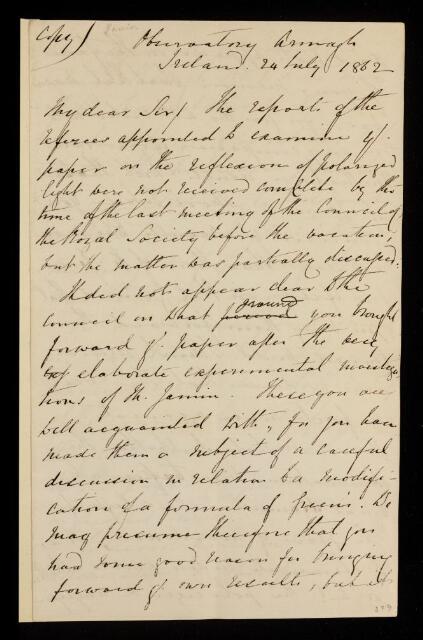 Copy)
Observatory Armagh
Ireland. 24 July 1862
My dear Sir/ The reports of the
referees appointed to examine yr.
paper on the reflexion of polarized
light were not received complete by the
time of the last meeting of the Council of
the Royal Society before the vacation,
but the matter was partially discussed.
It did not appear clear to the
ground
Council on what period you brought
forward yr. paper after the very
elaborate experimental investiga
tions of M. Jamin. These you are
well acquainted with, for you have
made them a subject of a careful
discussion in relation to a modifi-
cation of a formula of Green's. We
may presume therefore that you
had some good reason for bringing
forward yr. own results, but it